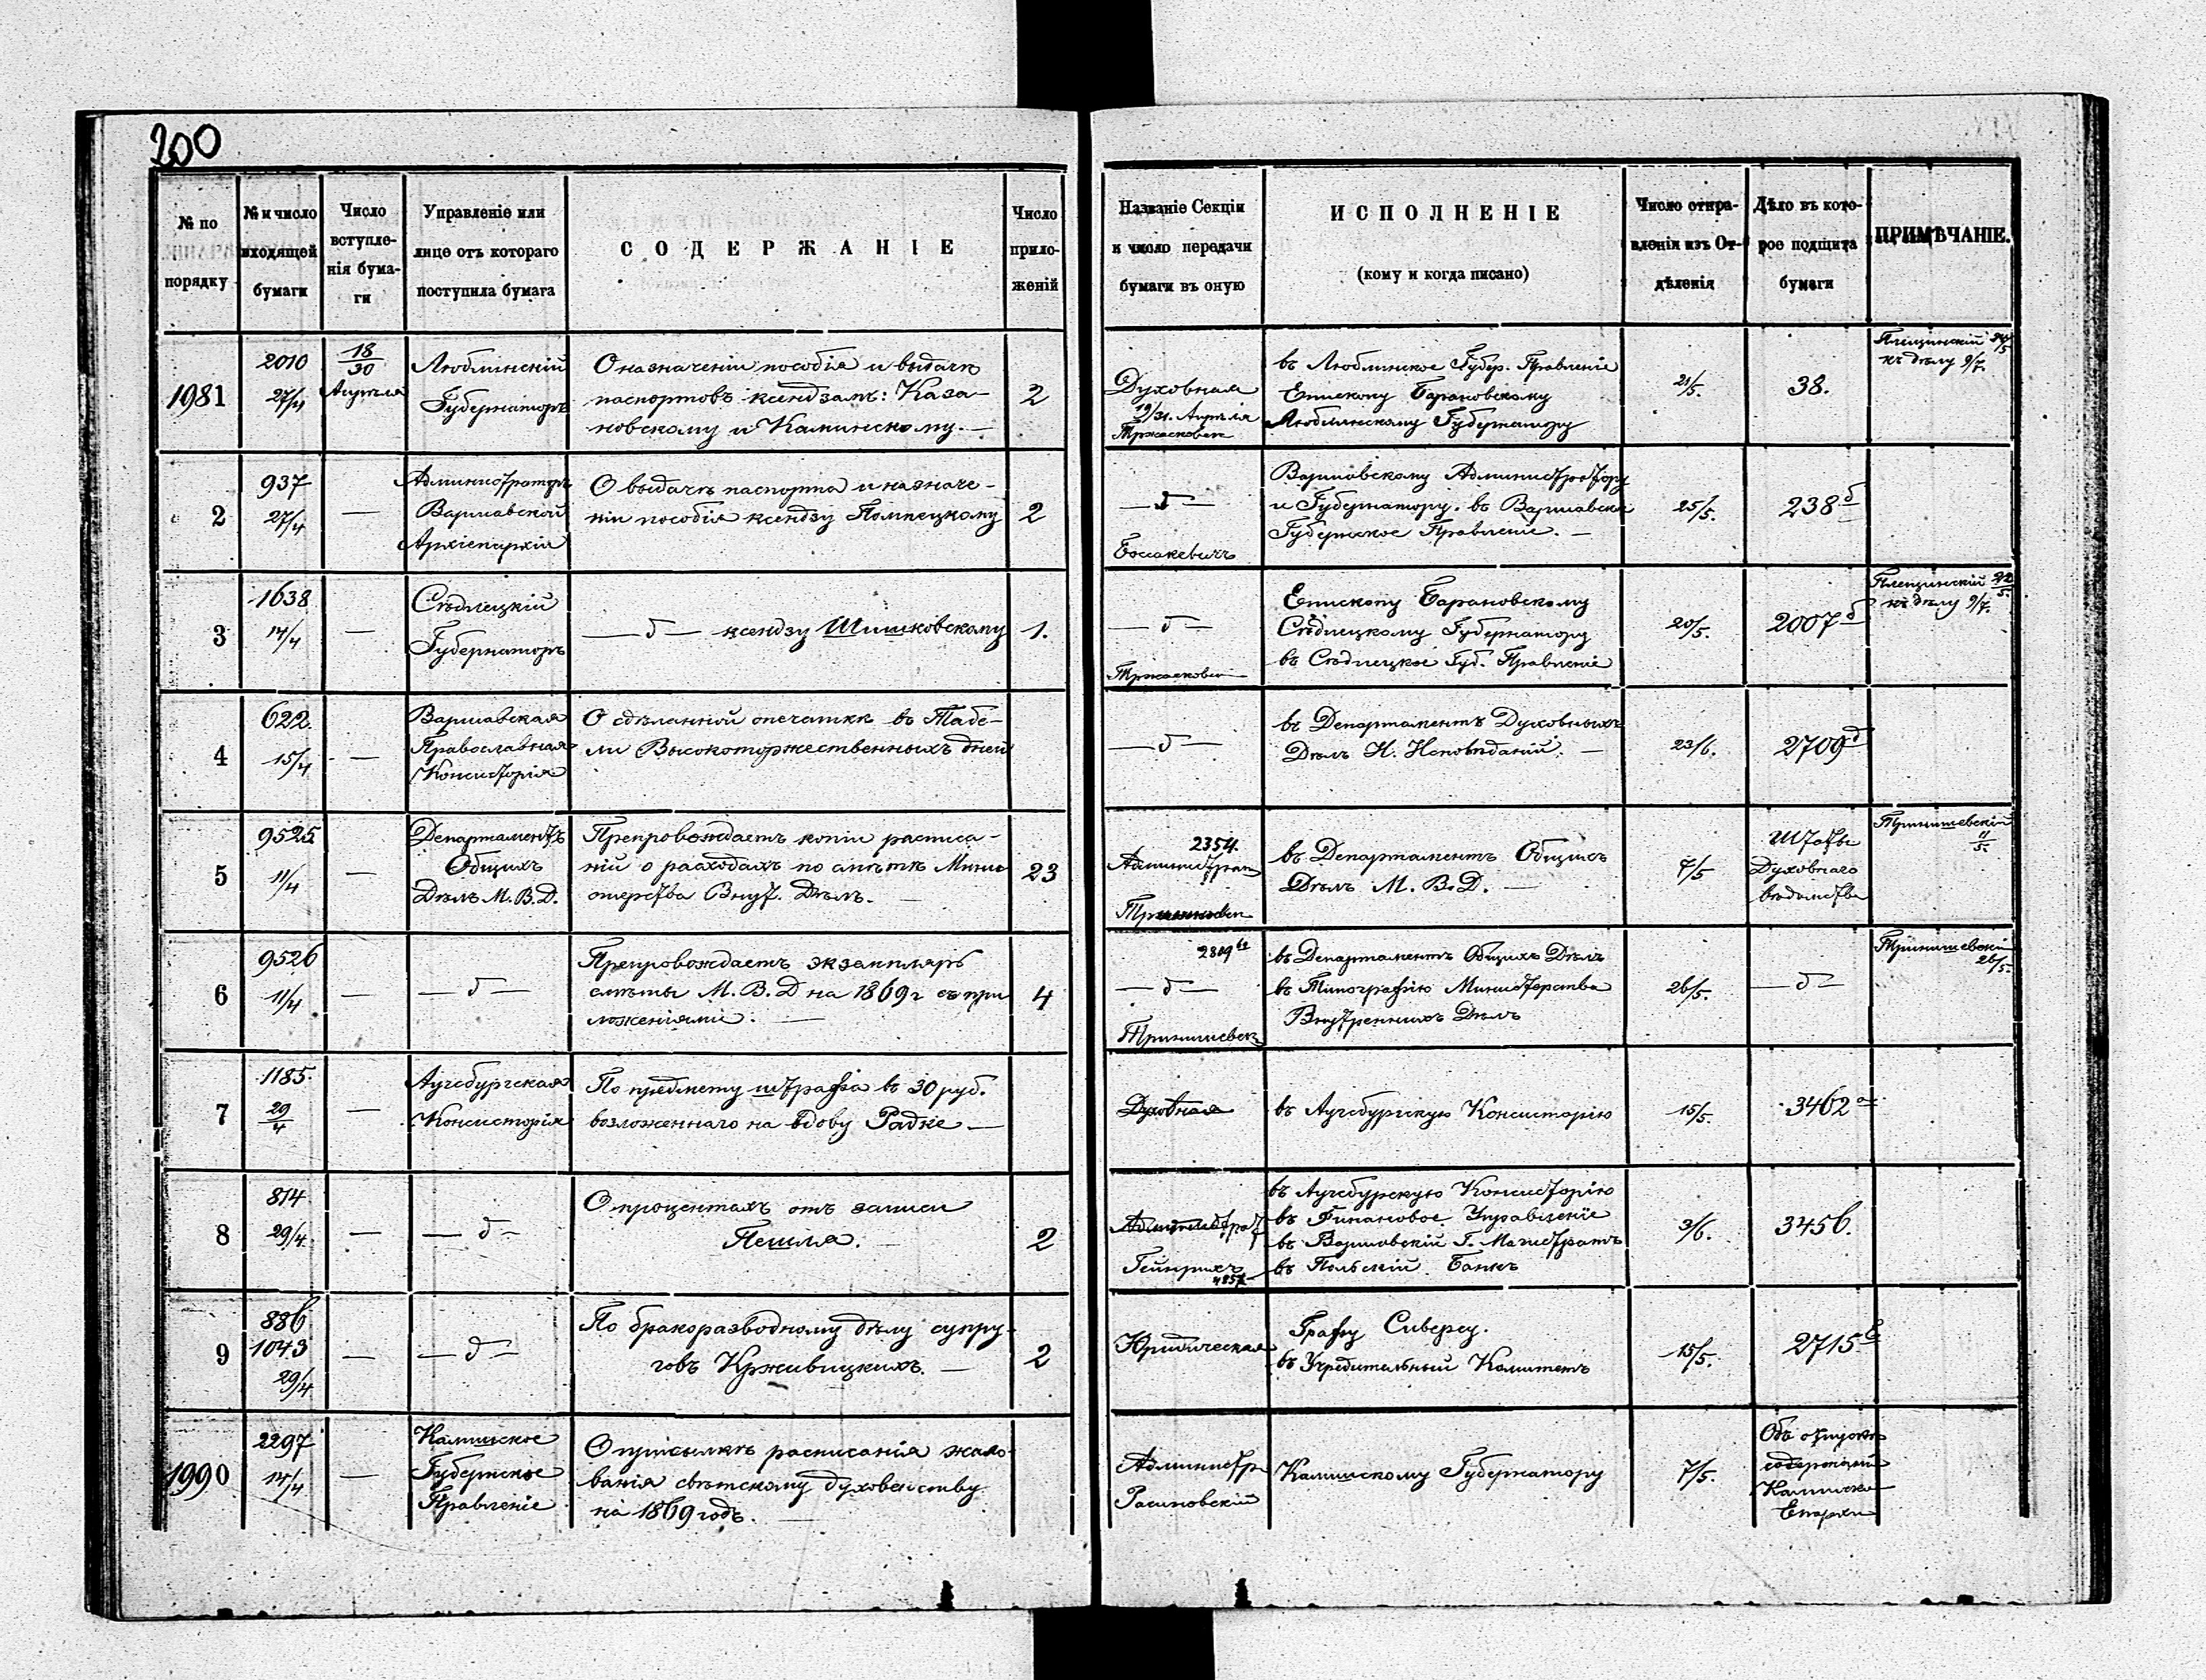 200
№ по порядку
№ и число входящей бумаги
Число вступленія бумаги
Управленіе или лице отъ котораго поступила бумага
СОДЕРЖАНІЕ
Число приложеній
Названіе Секціи и число передачи бумаги въ оную
ИСПОЛНЕНІЕ
(кому и когда писано)
Число отправленія изъ Отдѣленія
Дѣло въ которое подшита бумаги
ПРИМѢЧАНІЕ.
1981
2010
27/4
18/30
Апрѣля
Люблинскій
Губернаторъ
О назначеніи пособія и выдачѣ
паспортовъ ксендзамъ: Каза-
новскому и Каминскому. —
2
Духовная
19/31 Апрѣля
въ Люблинское Губер. Правленіе
Епископу Барановскому
Люблинскому Губернатору
21/5.
38.
Плещинскій 24/5
къ дѣлу 9/7.
2
937
27/4
—
Администраторъ
Варшавской
Архіепархіи
О выдачѣ паспорта и назначе-
ніи пособія ксендзу Помпецкому
2
— д —
Варшавскому Администратору
и Губернатору. въ Варшавское
Губернское Правленіе. —
25/5.
238 б
3
1638
14/4
—
Сѣдлецкій
Губернаторъ
— д — ксендзу Шишковскому
1.
— д —
Епископу Барановскому
Сѣдлецкому Губернатору
въ Сѣдлецкое Губ. Правленіе
20/5.
2007 б
Плещинскій 22/5.
къ дѣлу 9/7.
4
622
15/4
—
Варшавская
Православная
Консисторія
О сдѣланной опечаткѣ въ Табе-
ли Высокоторжественныхъ дней
— д —
въ Департаментъ Духовныхъ
Дѣлъ И. Исповѣданій. —
23/6.
2709 д
5
9525
11/4
—
Департаментъ
Общихъ
Дѣлъ М. В. Д.
Препровождаетъ копіи расписа-
ній о расходахъ по смѣтѣ Мини
стерства Внут. Дѣлъ. —
23
2354.
Администрат
въ Департаментъ Общихъ
Дѣлъ М. В. Д. —
7/5
Штаты
Духовнаго
вѣдомства
11/5.
6
9526
11/4
—
— д —
Препровождаетъ экземпляръ
смѣты М. В. Д на 1869 г съ при
ложеніями. —
4
— д —
въ Департаментъ Общихъ Дѣлъ
въ Типографію Министерства
Внутреннихъ Дѣлъ
26/5.
— д —
26/5.
7
1185.
29/4
—
Аугсбургская
Консисторія
По предмету штрафа въ 30 руб.
возложеннаго на вдову Радке —
Духовная
въ Аугсбургскую Консисторію
15/5.
3462 а
8
814
29/4
—
— д —
О процентахъ отъ записи
Пешля. —
2
Администрат
Гейнрихъ
въ Аугсбурскую Консисторію
въ Финановое Управленіе
въ Варшавскій Г. Магистратъ
въ Польскій Банкъ
3/6.
3456.
9
886
1043
29/4
—
— д —
По бракоразводному дѣлу супру-
говъ Крживицкихъ. —
2
Юридическая
Графу Сиверсу.
въ Учредительный Комитетъ
15/5.
2715
1990
2297
14/4
—
Калишское
Губернское
Правленіе
О присылкѣ расписанія жало-
ванія свѣтскому духовенству
на 1869 годъ. —
Администр
Калишскому Губернатору
7/5.
Калишской
Епархіи